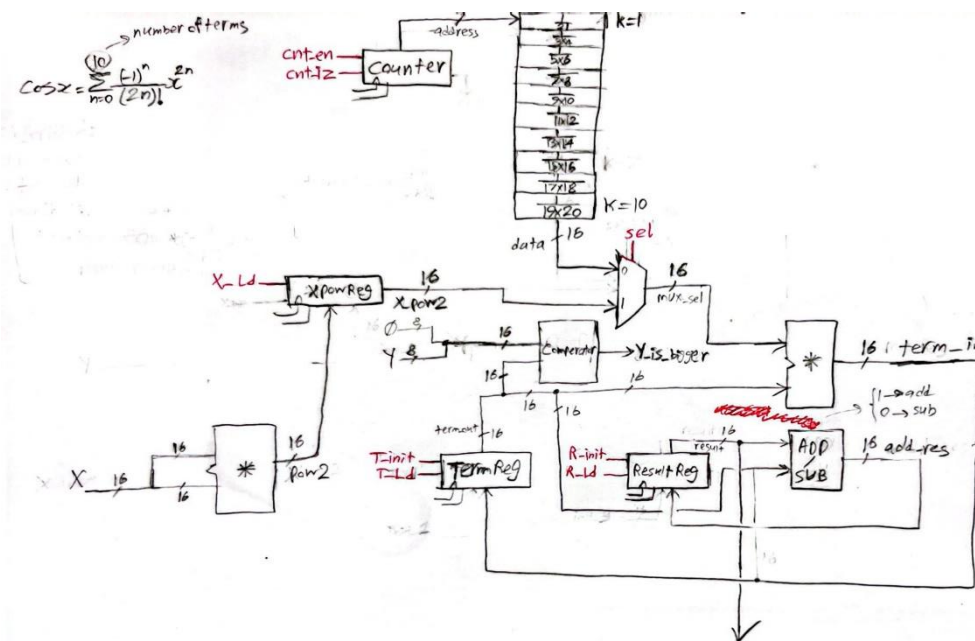 number of terms
cosx = 10 Σ n=0 (-1)^n / (2n)! x^2n
cnt-en
cnt-iz
Counter
address
k=1
1
5x6
1
7x8
1
9x10
1
11x12
1
13x14
1
17x18
1
19x20
k=10
data
16
sel
0
1
16
mux_sel
X_Ld
XpowReg
16
xpow2
Y 8
16
Comperator
Y_is_bigger
16
16
16
16
*
16
term_i
1 → add
0 → sub
X
16
16
16
*
16
pow2
termout
16
T_init
T_Ld
TermReg
R_init
R_Ld
ResultReg
16
result
ADD
SUB
16
add_res
16